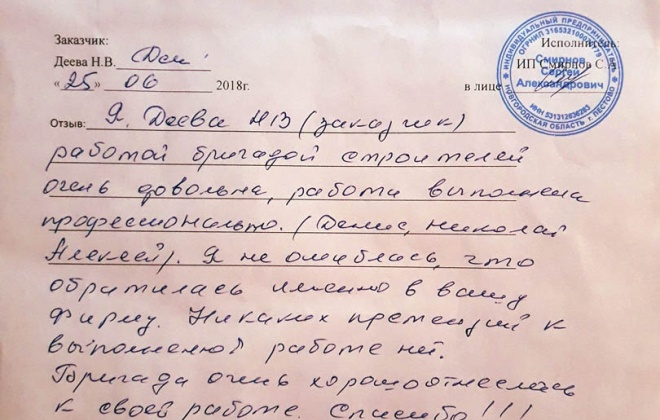 Заказчик:
Исполнитель:
Деева Н.В.
ИП Смирнов С.А.
«25» 06 2018г.
в лице
ИНДИВИДУАЛЬНЫЙ ПРЕДПРИНИМАТЕЛЬ
Смирнов
Сергей
Александрович
НОВГОРОДСКАЯ ОБЛАСТЬ г. ПЕСТОВО
Отзыв: Я, Деева НВ (заказчик)
работой бригадой строителей
очень довольна, работа выполнена
профессионально. (Денис, Николай
Алексей). Я не ошиблась, что
обратилась именно в вашу
фирму. Никаких претензий к
выполненной работе нет.
Бригада очень хорошо отнеслась
к своей работе. Спасибо!!!